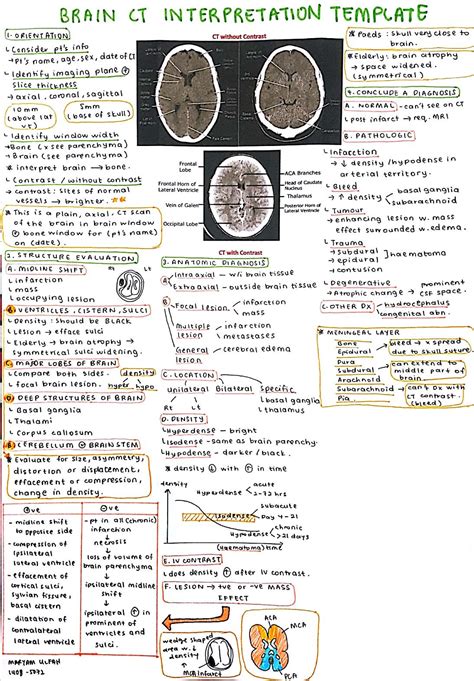 BRAIN CT INTERPRETATION TEMPLATE
1. ORIENTATION
Consider pt's info
→ PT's name, age, sex, date of CT
Identify imaging plane +
slice thickness
→ axial, coronal, sagittal
10mm
(above lat
5mm
(base of skull)
Identify window width
→ Bone (x see parenchyma)
→ Brain (see parenchyma)
* interpret brain → bone.
Contrast / without contrast
→ contrast: sites of normal
vessels → brighter.
* This is a plain, axial CT scan
of the brain in brain window
bone window for (pt's name)
on (date).
2. STRUCTURE EVALUATION
A. MIDLINE SHIFT
Infarction
mass
occupying lesion
Rt
Lt
B. VENTRICLES, CISTERN, SULCI
Density: should be BLACK
Lesion → efface sulci
Elderly → brain atrophy →
symmetrical sulci widening.
C. MAJOR LOBES OF BRAIN
Compare both sides. density
focal brain lesion. hyper hypo
D. DEEP STRUCTURES OF BRAIN
Basal ganglia
Thalami
Corpus callosum
E. CEREBELLUM + BRAINSTEM
* Evaluate for size, asymmetry,
distortion or displacement,
effacement or compression,
change in density.
+ve
- midline shift
to opposite side
- compression of
ipsilateral
lateral ventricle
- effacement of
cortical sulci,
sylvian fissure,
basal cistern
- dilatation of
contralateral
lateral ventricle
-ve
- pt in old (chronic)
infarction
↓
necrosis
↓
loss of volume of
brain parenchyma
↓
ipsilateral midline
shift
↓
ipsilateral ↑ in
prominent of
ventricles and
sulci.
MARYAM ULFAH
CT without Contrast
Frontal
Lobe
Frontal Horn of
Lateral Ventricle
Vein of Galen
Occipital Lobe
ACA Branches
Head of Caudate
Nucleus
Thalamus
Posterior Horn of
Lateral Ventricle
CT with Contrast
3. ANATOMIC DIAGNOSIS
A. Intraaxial → w/i brain tissue
Extraaxial - outside brain tissue
B. Focal lesion
infarction
mass
Multiple
lesion
infarction
metastases
General → cerebral edema
C. LOCATION
Unilateral Bilateral Specific
Rt
Lt
basal ganglia
thalamus
D. DENSITY
Hyperdense - bright
Isodense - same as brain parenchy.
Hypodense - darker / black.
* density ↓ with ↑ in time
density
Hyperdense
acute
2-72 hrs
Isodense
subacute
Day 4 - 21
Hypodense
chronic
>21 days
(Haematoma) time
E. IV CONTRAST
does density ↑ after IV contrast.
F. LESION → +ve or -ve MASS
EFFECT
wedge shaped
area w. ↓
density
MCA infarct
ACA
MCA
PCA
* Paeds: skull very close to
brain.
* Elderly: brain atrophy
→ space widened.
(symmetrical)
4. CONCLUDE A DIAGNOSIS
A. NORMAL - can't see on CT
post infarct → req. MRI
B. PATHOLOGIC
Infarction
→ ↓ density / hypodense in
arterial territory.
Bleed
→ ↑ density
basal ganglia
subarachnoid
Tumour
→ enhancing lesion w. mass
effect surrounded w. edema.
Trauma
→ subdural
→ epidural
haematoma
→ contusion
Degenerative
→ Atrophic change →
prominent
CSF space.
C. OTHER DX
hydrocephalus
congenital abn.
* MENINGEAL LAYER
Bone
Epidural
Dura
Subdural
Arachnoid
Subarachnoid
Pia
bleed → x spread
due to skull suture.
can extend to
middle part of
brain.
can't Dx with
CT contrast.
(bleed)